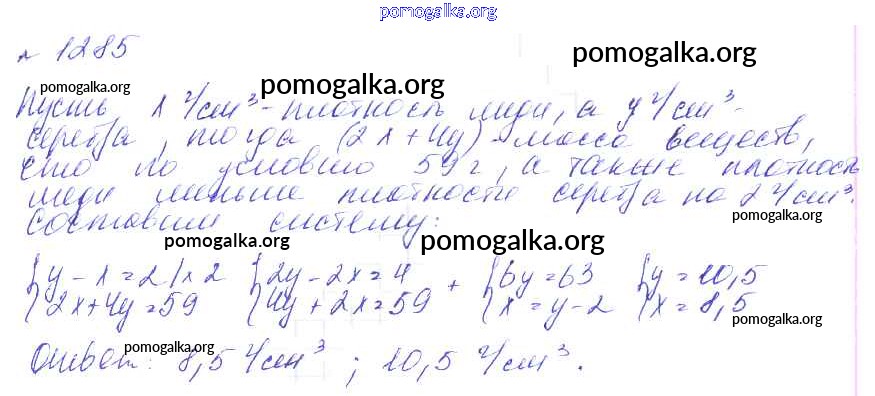 pomogalka.org
№ 1285
pomogalka.org
pomogalka.org
pomogalka.org
Пусть x г/см³ - плотность меди, а y г/см³ -
серебра, тогда (2x + 4y) - масса веществ,
что по условию 59 г, а также плотность
меди меньше плотности серебра на 2 г/см³.
pomogalka.org
Составим систему:
pomogalka.org
pomogalka.org
{y - x = 2 | x 2 {2y - 2x = 4 + {6y = 63 {y = 10,5
{2x + 4y = 59 {4y + 2x = 59 {x = y - 2 {x = 8,5
pomogalka.org
pomogalka.org
Ответ: 8,5 г/см³ ; 10,5 г/см³.